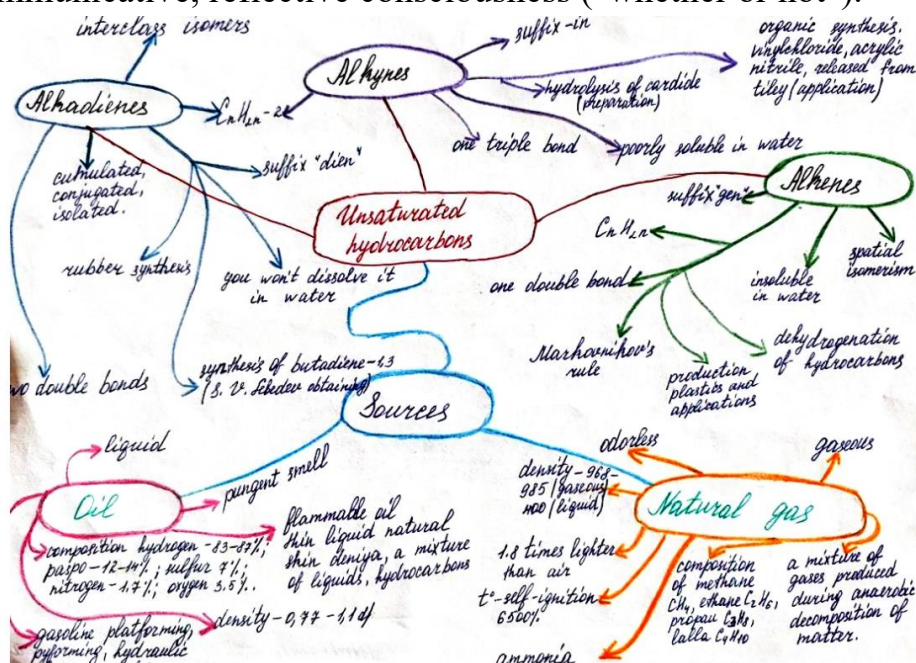 mmunicative, reflective consciousness ("whether or not").
interclass isomers
Alkadienes
CnH2n-2
cumulated,
conjugated,
isolated.
suffix "dien"
rubber synthesis
you won't dissolve it
in water
wo double bonds
synthesis of butadiene-1,3
(S. V. Lebedev obtaining)
Alkynes
suffix-in
hydrolysis of cardide
(preparation)
organic synthesis.
vinylchloride, acrylic
nitrile, released from
tiley (application)
one triple bond
poorly soluble in water
Unsaturated
hydrocarbons
Alkenes
suffix "gen"
CnH2n
one double bond
Markovnikov's
rule
production,
plastics and
applications
dehydrogenation
of hydrocarbons
insoluble
in water
spatial
isomerism
Sources
Oil
liquid
pungent smell
flammable oil
thin liquid natural
shin deniya, a mixture
of liquids, hydrocarbons
composition hydrogen-83-87%;
paspo-12-14%; sulfur 7%;
nitrogen-1.7%; oxygen 3.5%..
density-0,77-1,1
gasoline platforming,
pyforming, hydraulic
Natural gas
odorless
gaseous
density-968-
985 (gaseous)
400 (liquid)
1.8 times lighter
than air
t°-self-ignition
6500%
ammonia
composition
of methane
CH4, ethane C2H6,
propau C3H8,
lalla C4H10
a mixture of
gases produced
during anaerobic
decomposition of
matter.